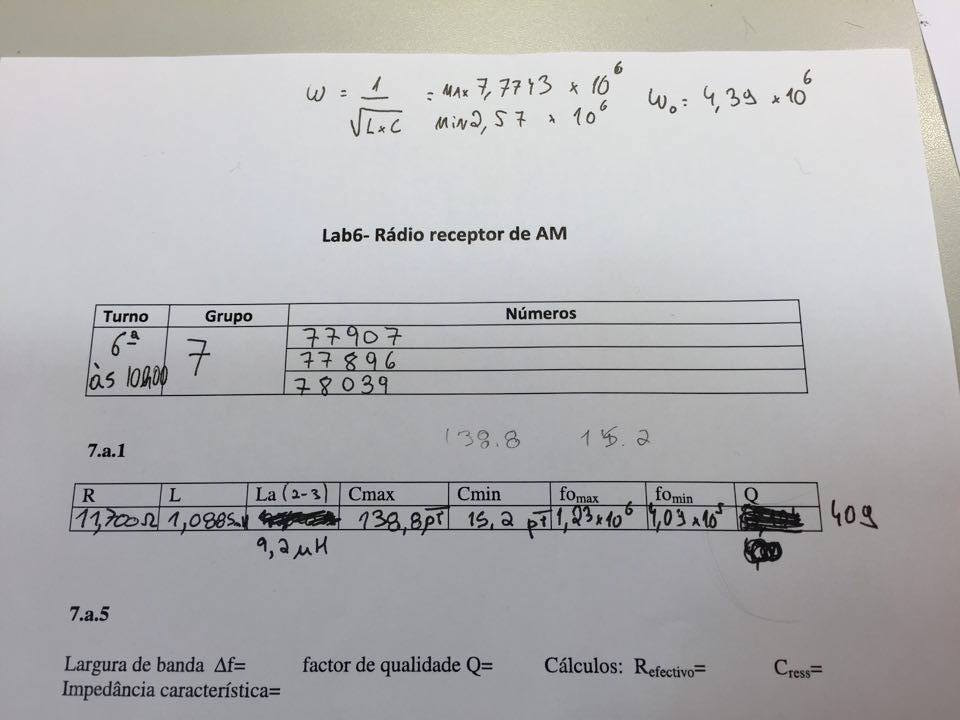 ω = 1 / √L×C = MAX 7,7743 × 10⁶ ω₀ = 4,39 × 10⁶
MIN 2,57 × 10⁶
Lab6- Rádio receptor de AM
Turno Grupo Números
6ª às 10h00 7 77907
77896
78039
138.8 15.2
7.a.1
R L La (2-3) Cmax Cmin fomax fomin Q
11,700Ω 1,0885m 138,8pF 15,2 pF 1,23×10⁶ 4,09×10⁵ 409
9,2μH
7.a.5
Largura de banda Δf= factor de qualidade Q= Cálculos: Refectivo= Cress=
Impedância característica=